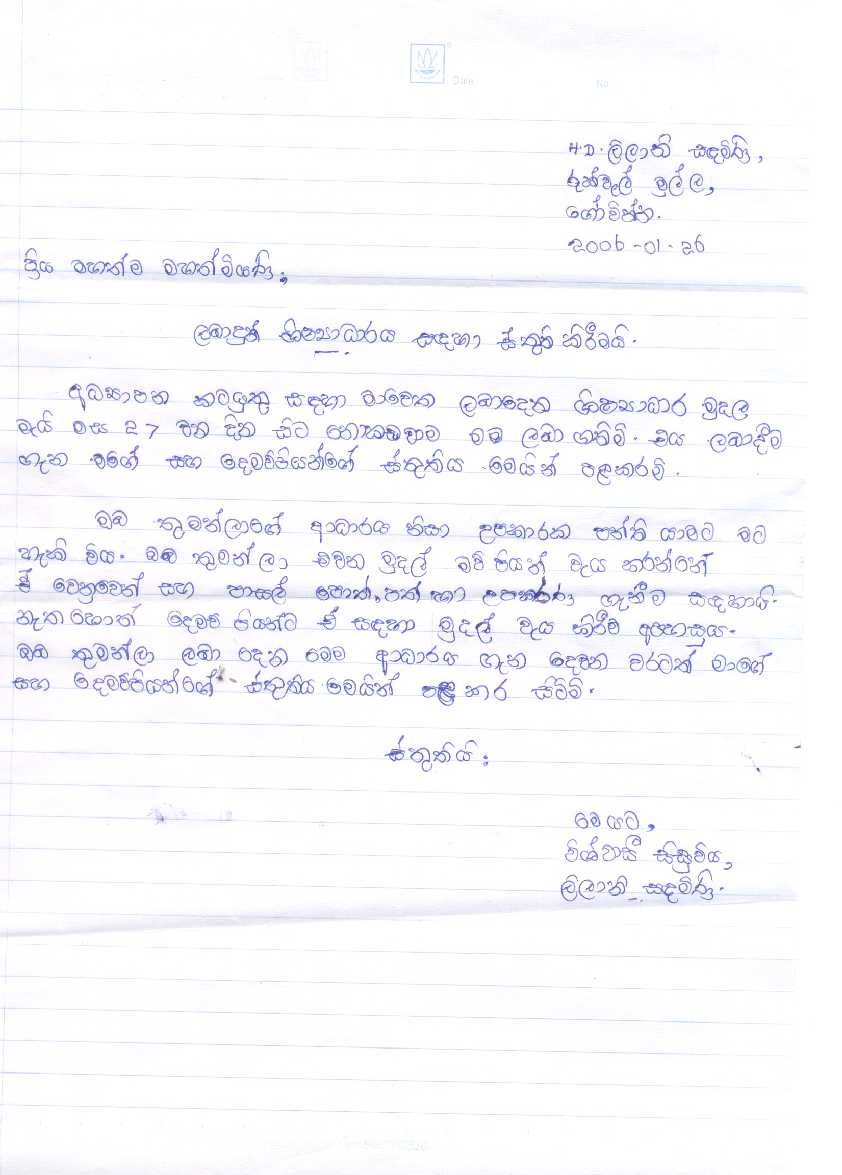 H.D. ලිලානි සඳමිණි,
රන්වල් මුල්ල,
ගෝවින්න.
2006-01-26
ප්‍රිය මහත්ම මහත්මියණි,
ලබාදුන් ශිෂ්‍යාධාරය සඳහා ස්තූති කිරීමයි.
අධ්‍යාපන කටයුතු සඳහා මාවෙත ලබාදෙන ශිෂ්‍යාධාර මුදල
මැයි මස 27 වන දින සිට නොකඩවාම මම ලබා ගතිමි. එය ලබාදීම
ගැන මගේ සහ දෙමව්පියන්ගේ ස්තූතිය මෙයින් පළකරමි.
ඔබ තුමන්ලාගේ ආධාරය නිසා උපකාරක පන්ති යාමට මට
හැකි විය. ඔබ තුමන්ලා එවන මුදල් මව් පියන් වැය කරන්නේ
ඒ වෙනුවෙන් සහ පාසල් පොත්, පත් හා උපකරණ ගැනීම සඳහායි.
නැතහොත් දෙමව් පියන්ට ඒ සඳහා මුදල් වැය කිරීම අපහසුය.
ඔබ තුමන්ලා ලබා දෙන මෙම ආධාරය ගැන දෙවන වරටත් මාගේ
සහ දෙමව්පියන්ගේ ස්තූතිය මෙයින් පළ කර සිටිමි.
ස්තූතියි.
මෙයට,
විශ්වාසී සිසුවිය,
ලිලානි සඳමිණි.